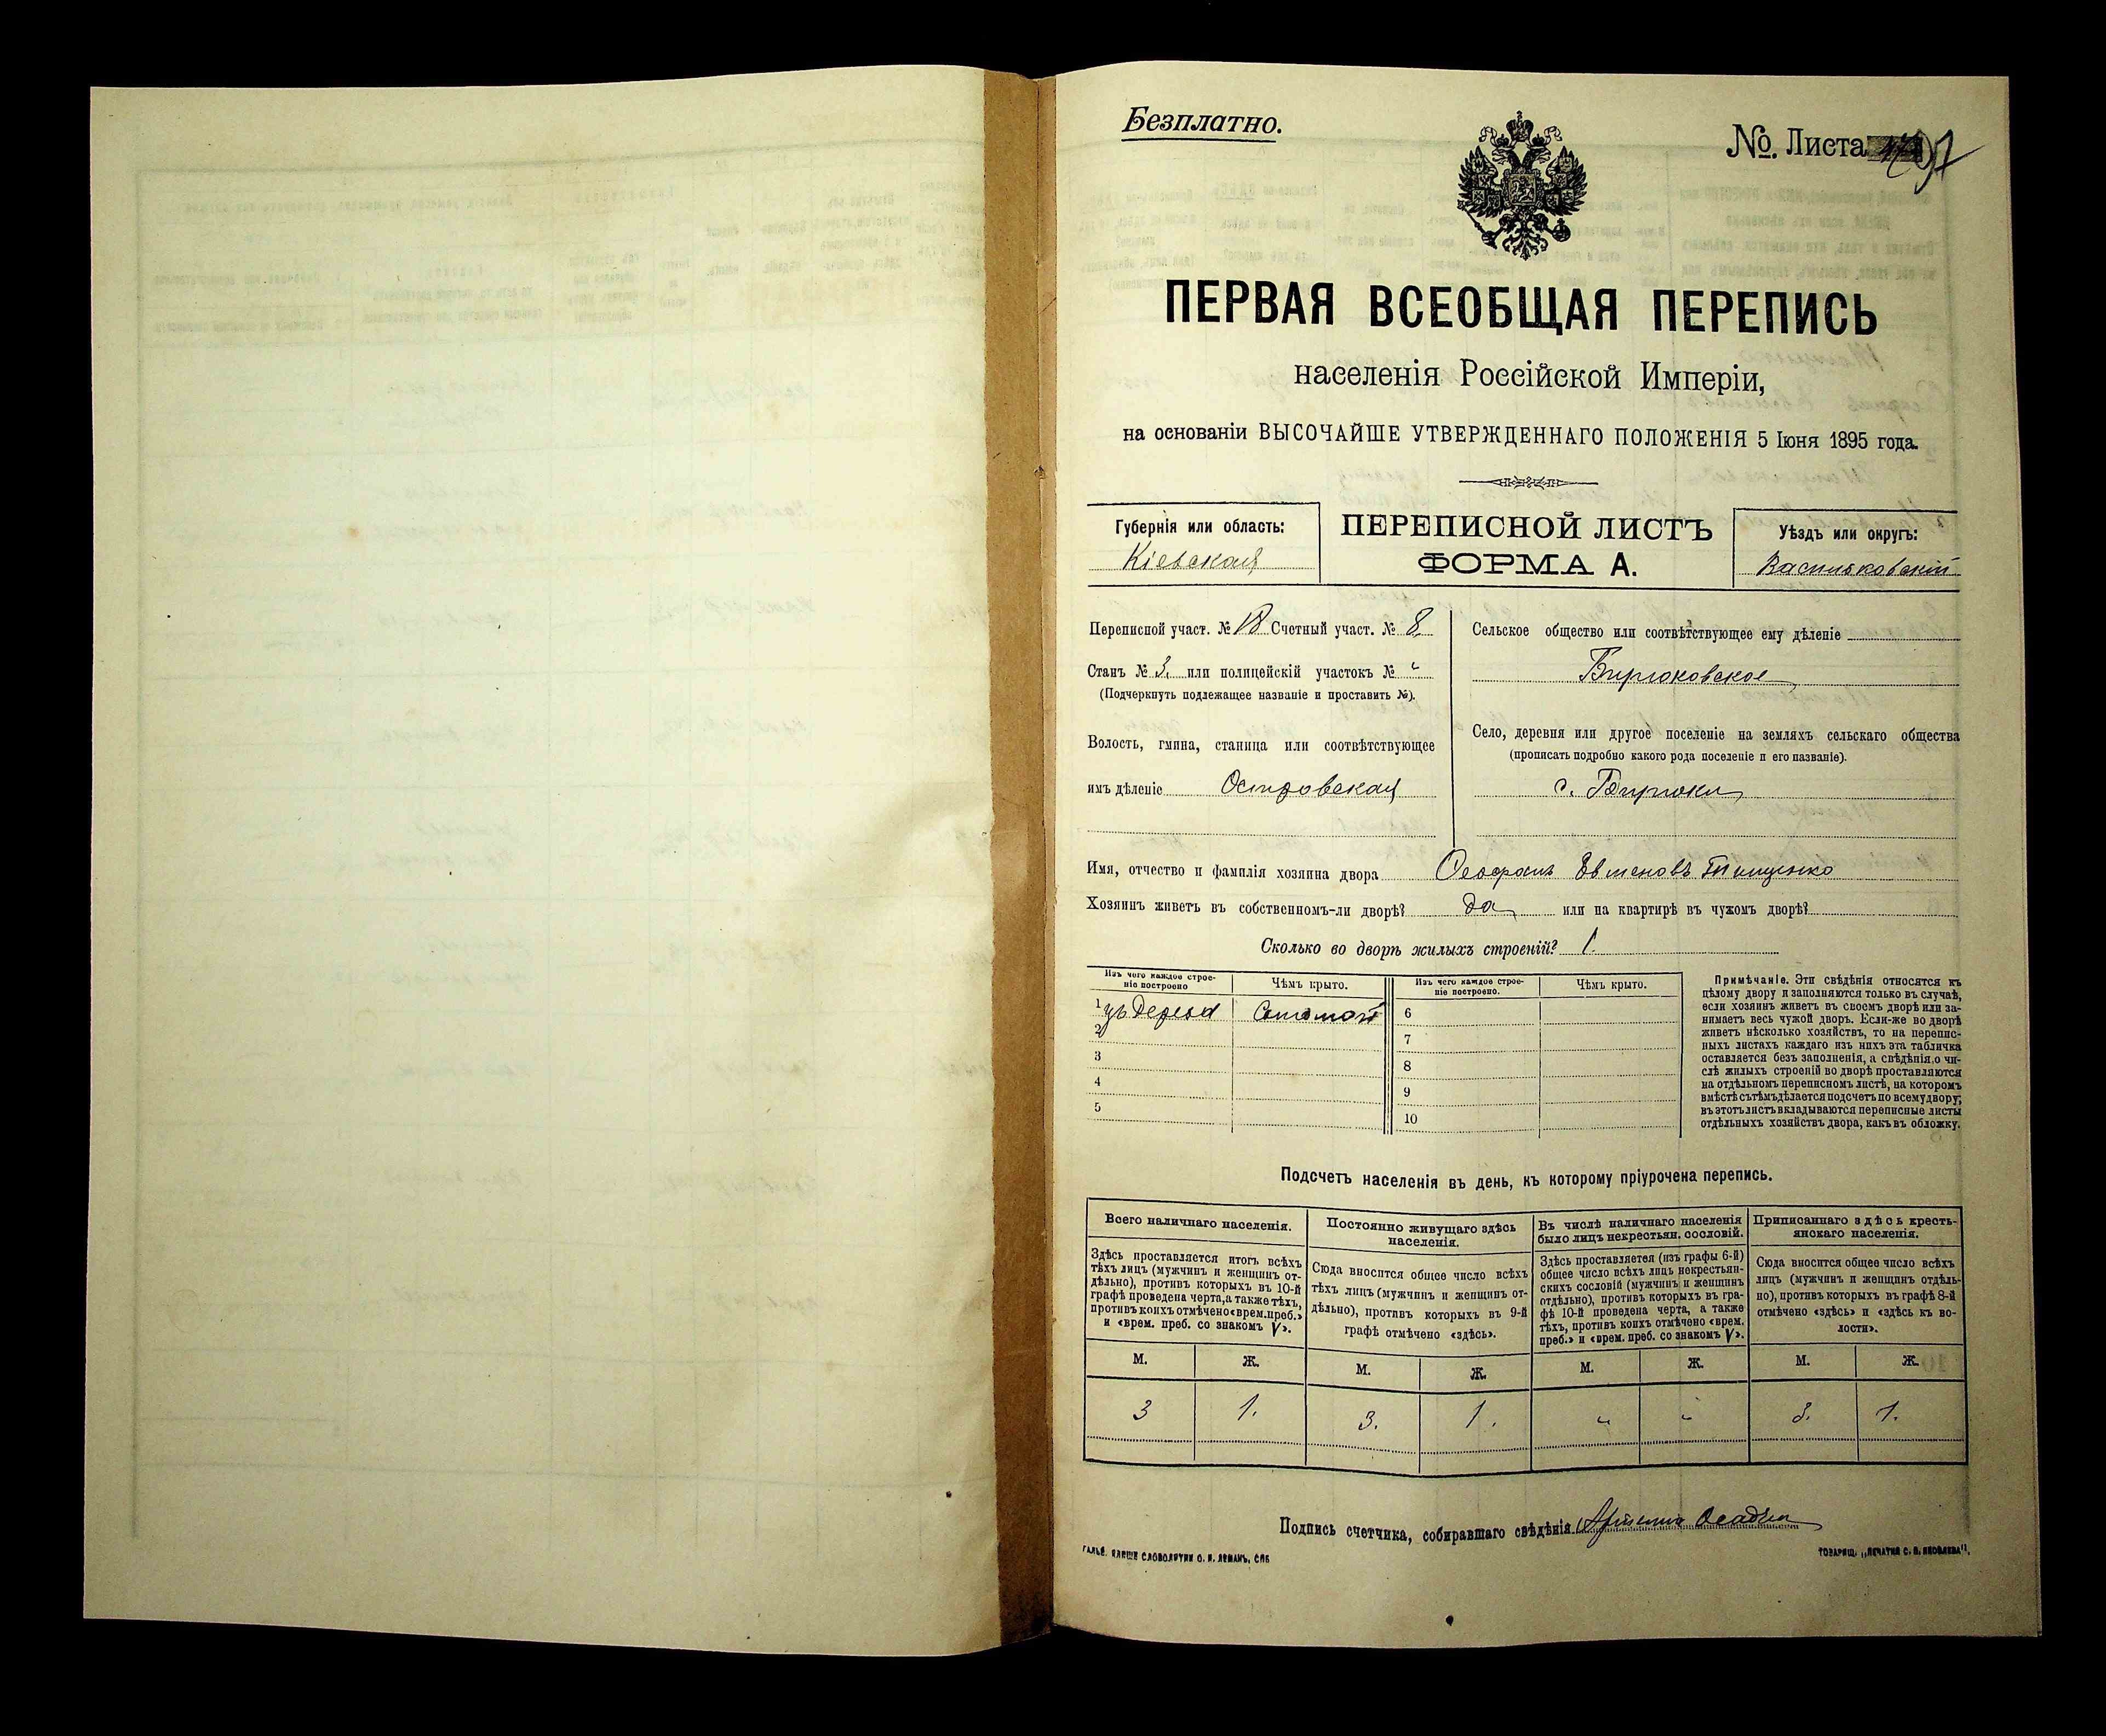 Безплатно.
№. Листа
ПЕРВАЯ ВСЕОБЩАЯ ПЕРЕПИСЬ
населенія Россійской Имперіи,
на основаніи ВЫСОЧАЙШЕ УТВЕРЖДЕННАГО ПОЛОЖЕНІЯ 5 Іюня 1895 года.
Губернія или область:
Кіевская
ПЕРЕПИСНОЙ ЛИСТЪ
ФОРМА А.
Уѣздъ или округъ:
Васильковскій
Переписной участ. № 18 Счетный участ. № 8
Станъ № 3. или полицейскій участокъ № "
(Подчеркнуть подлежащее названіе и проставить №).
Волость, гмина, станица или соотвѣтствующее
имъ дѣленіе Островская
Сельское общество или соотвѣтствующее ему дѣленіе
Бирюковское
Село, деревня или другое поселеніе на земляхъ сельскаго общества
(прописать подробно какого рода поселеніе и его названіе).
с. Бирюки
Имя, отчество и фамилія хозяина двора Евменовъ Тищенко
Хозяинъ живетъ въ собственномъ-ли дворѣ? да или на квартирѣ въ чужомъ дворѣ?
Сколько во дворѣ жилыхъ строеній? 1.
Изъ чего каждое строе-
ніе построено
Чѣмъ крыто.
Изъ чего каждое строе-
ніе построено.
Чѣмъ крыто.
1 изъ дерева Соломой
2
3
4
5
6
7
8
9
10
Примѣчаніе. Эти свѣдѣнія относятся къ
цѣлому двору и заполняются только въ случаѣ,
если хозяинъ живетъ въ своемъ дворѣ или за-
нимаетъ весь чужой дворъ. Если-же во дворѣ
живетъ нѣсколько хозяйствъ, то на перепис-
ныхъ листахъ каждаго изъ нихъ эта табличка
оставляется безъ заполненія, а свѣдѣнія о чи-
слѣ жилыхъ строеній во дворѣ проставляются
на отдѣльномъ переписномъ листѣ, на которомъ
вмѣстѣ съ тѣмъ дѣлается подсчетъ по всему двору;
въ этотъ листъ вкладываются переписные листы
отдѣльныхъ хозяйствъ двора, какъ въ обложку.
Подсчетъ населенія въ день, къ которому пріурочена перепись.
Всего наличнаго населенія.
Здѣсь проставляется итогъ всѣхъ
тѣхъ лицъ (мужчинъ и женщинъ от-
дѣльно), противъ которыхъ въ 10-й
графѣ проведена черта, а также тѣхъ,
противъ коихъ отмѣчено «врем. преб.»
и «врем. преб. со знакомъ V».
Постоянно живущаго здѣсь
населенія.
Сюда вносится общее число всѣхъ
тѣхъ лицъ (мужчинъ и женщинъ от-
дѣльно), противъ которыхъ въ 9-й
графѣ отмѣчено «здѣсь».
Въ числѣ наличнаго населенія
было лицъ некрестьян. сословій.
Здѣсь проставляется (изъ графы 6-й)
общее число всѣхъ лицъ некрестьян-
скихъ сословій (мужчинъ и женщинъ
отдѣльно), противъ которыхъ въ гра-
фѣ 10-й проведена черта, а также
тѣхъ, противъ коихъ отмѣчено «врем.
преб.» и «врем. преб. со знакомъ V».
Приписаннаго здѣсь кресть-
янскаго населенія.
Сюда вносится общее число всѣхъ
лицъ (мужчинъ и женщинъ отдѣль-
но), противъ которыхъ въ графѣ 8-й
отмѣчено «здѣсь» и «здѣсь къ во-
лости».
М. Ж. М. Ж. М. Ж. М. Ж.
3 1. 3. 1. " " 3. 1.
Подпись счетчика, собиравшаго свѣдѣнія
СЛОВОЛИТНИ О. И. ЛЕМАНЪ, СПБ
ТОВАРИЩ. „ПЕЧАТНЯ С. П. ЯКОВЛЕВА".